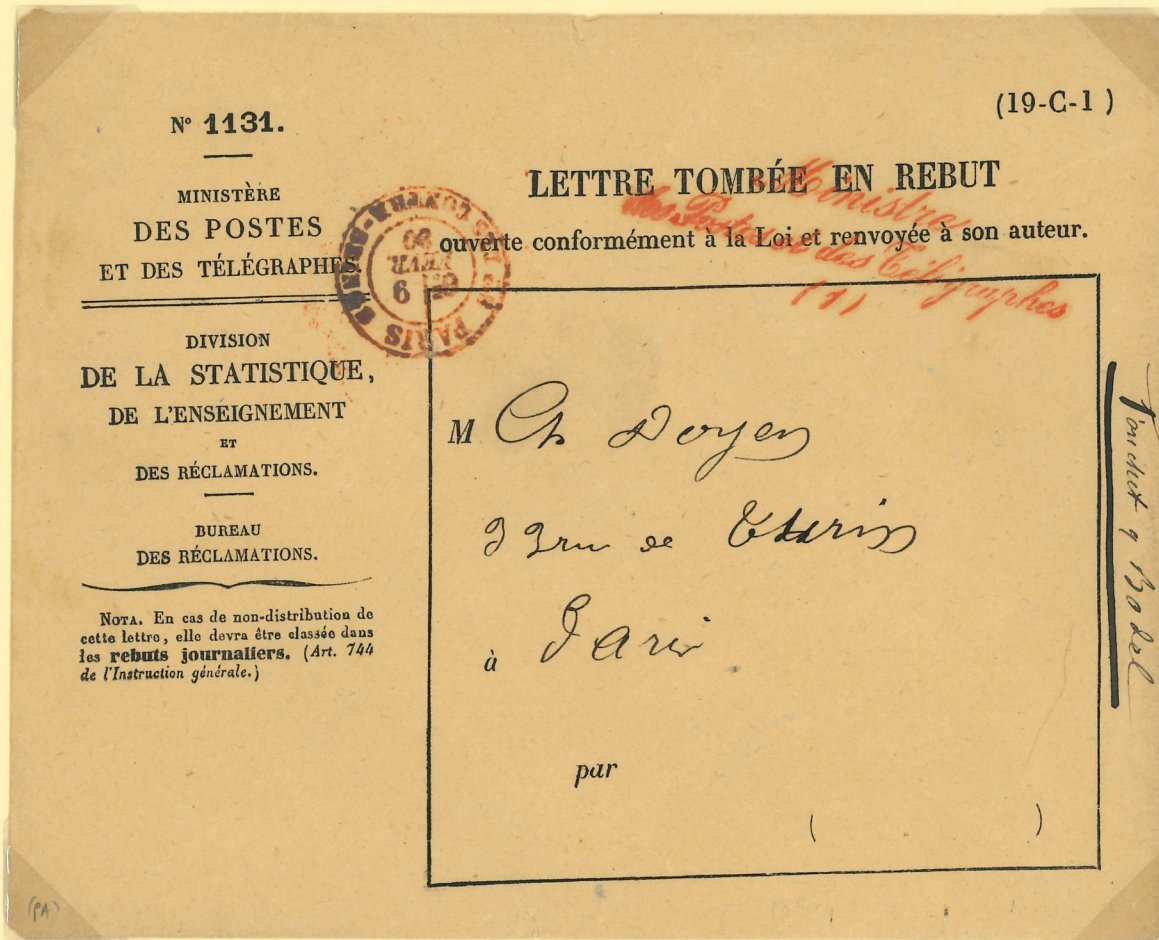 (19-C-1)
N° 1131.
MINISTÈRE
DES POSTES
ET DES TÉLÉGRAPHES.
DIVISION
DE LA STATISTIQUE,
DE L'ENSEIGNEMENT
ET
DES RÉCLAMATIONS.
BUREAU
DES RÉCLAMATIONS.
NOTA. En cas de non-distribution de
cette lettre, elle devra être classée dans
les rebuts journaliers. (Art. 744
de l'Instruction générale.)
LETTRE TOMBÉE EN REBUT
ouverte conformément à la Loi et renvoyée à son auteur.
Ministre
des Postes et des Télégraphes
(1)
PARIS
M Ch Doyen
33 rue de Turin
à Paris
par
( )
(PA)